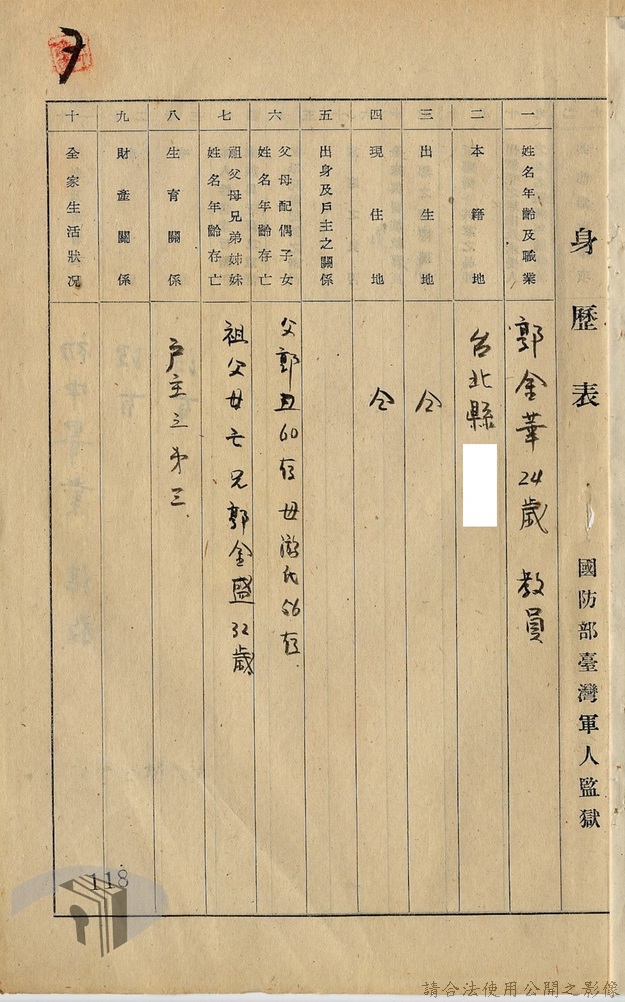 身歷表 國防部臺灣軍人監獄
一 姓名年齡及職業 郭金華24歲 教員
二 本籍地 台北縣
三 出生地 仝
四 現住地 仝
五 出身及戶主之關係
六 父母配偶子女姓名年齡存亡 父郭丑60存 母游氏56存
七 祖父母兄弟姊妹姓名年齡存亡 祖父母亡兄郭金盛32歲
八 生育關係 戶主之弟三
九 財產關係
十 全家生活狀況
118
請合法使用公開之影像